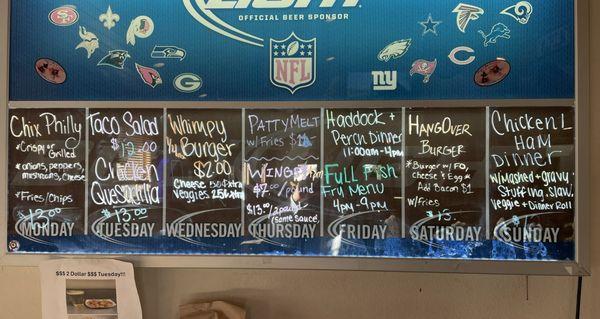 LIGHT
OFFICIAL BEER SPONSOR
NFL
NY
G
C
Chix Philly
*Crispy or
Grilled
*onions, peppers,
mushrooms, cheese
*Fries/Chips
$12.00
MONDAY
Taco Salad
$12.00
Chicken
Quesadilla
$13.00
TUESDAY
Whimpy
Burger
$2.00
Cheese 50¢ xtra
Veggies 25¢ xtra
WEDNESDAY
PattyMelt
w/Fries
Wings
$7.00/pound
$13.00/2 pounds
same sauce
THURSDAY
Haddock +
Perch Dinner
11:00am-4pm
Full Fish
Fry Menu
4pm-9pm
FRIDAY
HangOver
Burger
*Burger w/FO,
Cheese & Egg*
Add Bacon $1
w/Fries
$13.00
SATURDAY
Chicken
Ham
Dinner
w/mashed + gravy,
Stuffing, Slaw,
veggie + Dinner Roll
SUNDAY
$$$ 2 Dollar $$$ Tuesday!!!